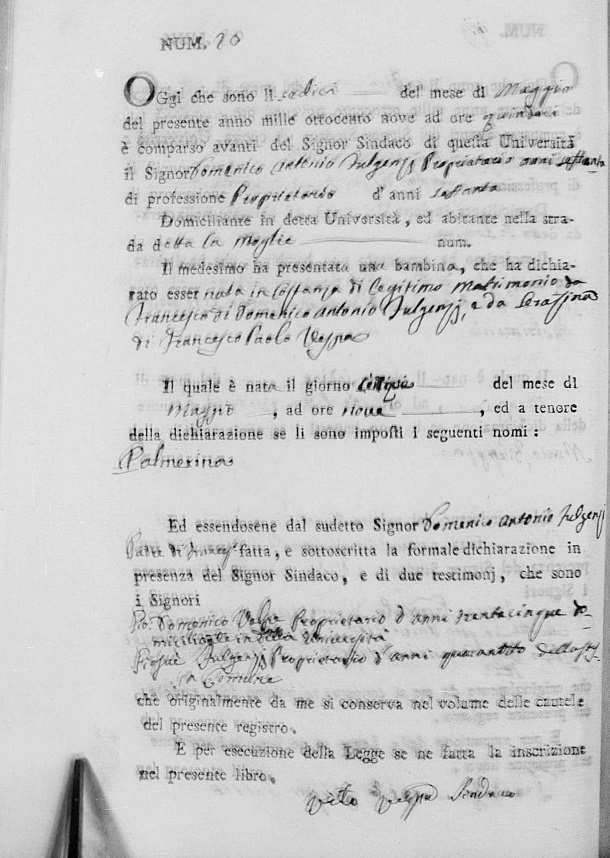 NUM. 20
OGgi che sono li sedici del mese di Maggio
del presente anno mille ottocento nove ad ore quindeci
è comparso avanti del Signor Sindaco di questa Università
il Signor Domenico Antonio Fulgenzj Proprietario anni settanta
di professione Proprietario d'anni settanta
Domiciliante in detta Università, ed abitante nella stra-
da detta la Moglie num.
Il medesimo ha presentata una bambina, che ha dichia-
rato esser nata in costanza di Legitimo Matrimonio da
Francesco di Domenico Antonio Fulgenzj, e da
di Francesco Paolo Vespa
Il quale è nata il giorno Cinque del mese di
Maggio, ad ore nove, ed a tenore
della dichiarazione se li sono imposti i seguenti nomi:
Palmerina
Ed essendosene dal sudetto Signor Domenico Antonio Fulgenzj
Padre di fatta, e sottoscritta la formale dichiarazione in
presenza del Signor Sindaco, e di due testimonj, che sono
i Signori
Domenico Proprietario d'anni trentacinque do-
miciliante in detta Università
Fulgenzj Proprietario d'anni
che originalmente da me si conserva nel volume delle cautele
del presente registro.
E per esecuzione della Legge se ne fatta la inscrizione
nel presente libro.
Vito Vespa Sindaco